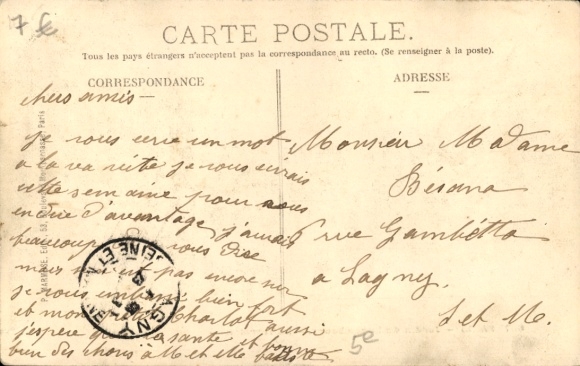 7 €
CARTE POSTALE.
Tous les pays étrangers n'acceptent pas la correspondance au recto. (Se renseigner à la poste).
CORRESPONDANCE
ADRESSE
chers amis
je vous ecrie un mot
a la va vite je vous écrirais
cette semaine pour vous
en dire d'avantage j'aurais
beaucoup vous dire
mais pas encore
je vous embrasse bien fort
et mon Charlot aussi
j'espère que la santé et bonne
bien des choses à M et Mme
Monsieur Madame
Bésana
6 rue Gambetta
a Lagny
S et M.
LAGNY
SEINE ET M
5e